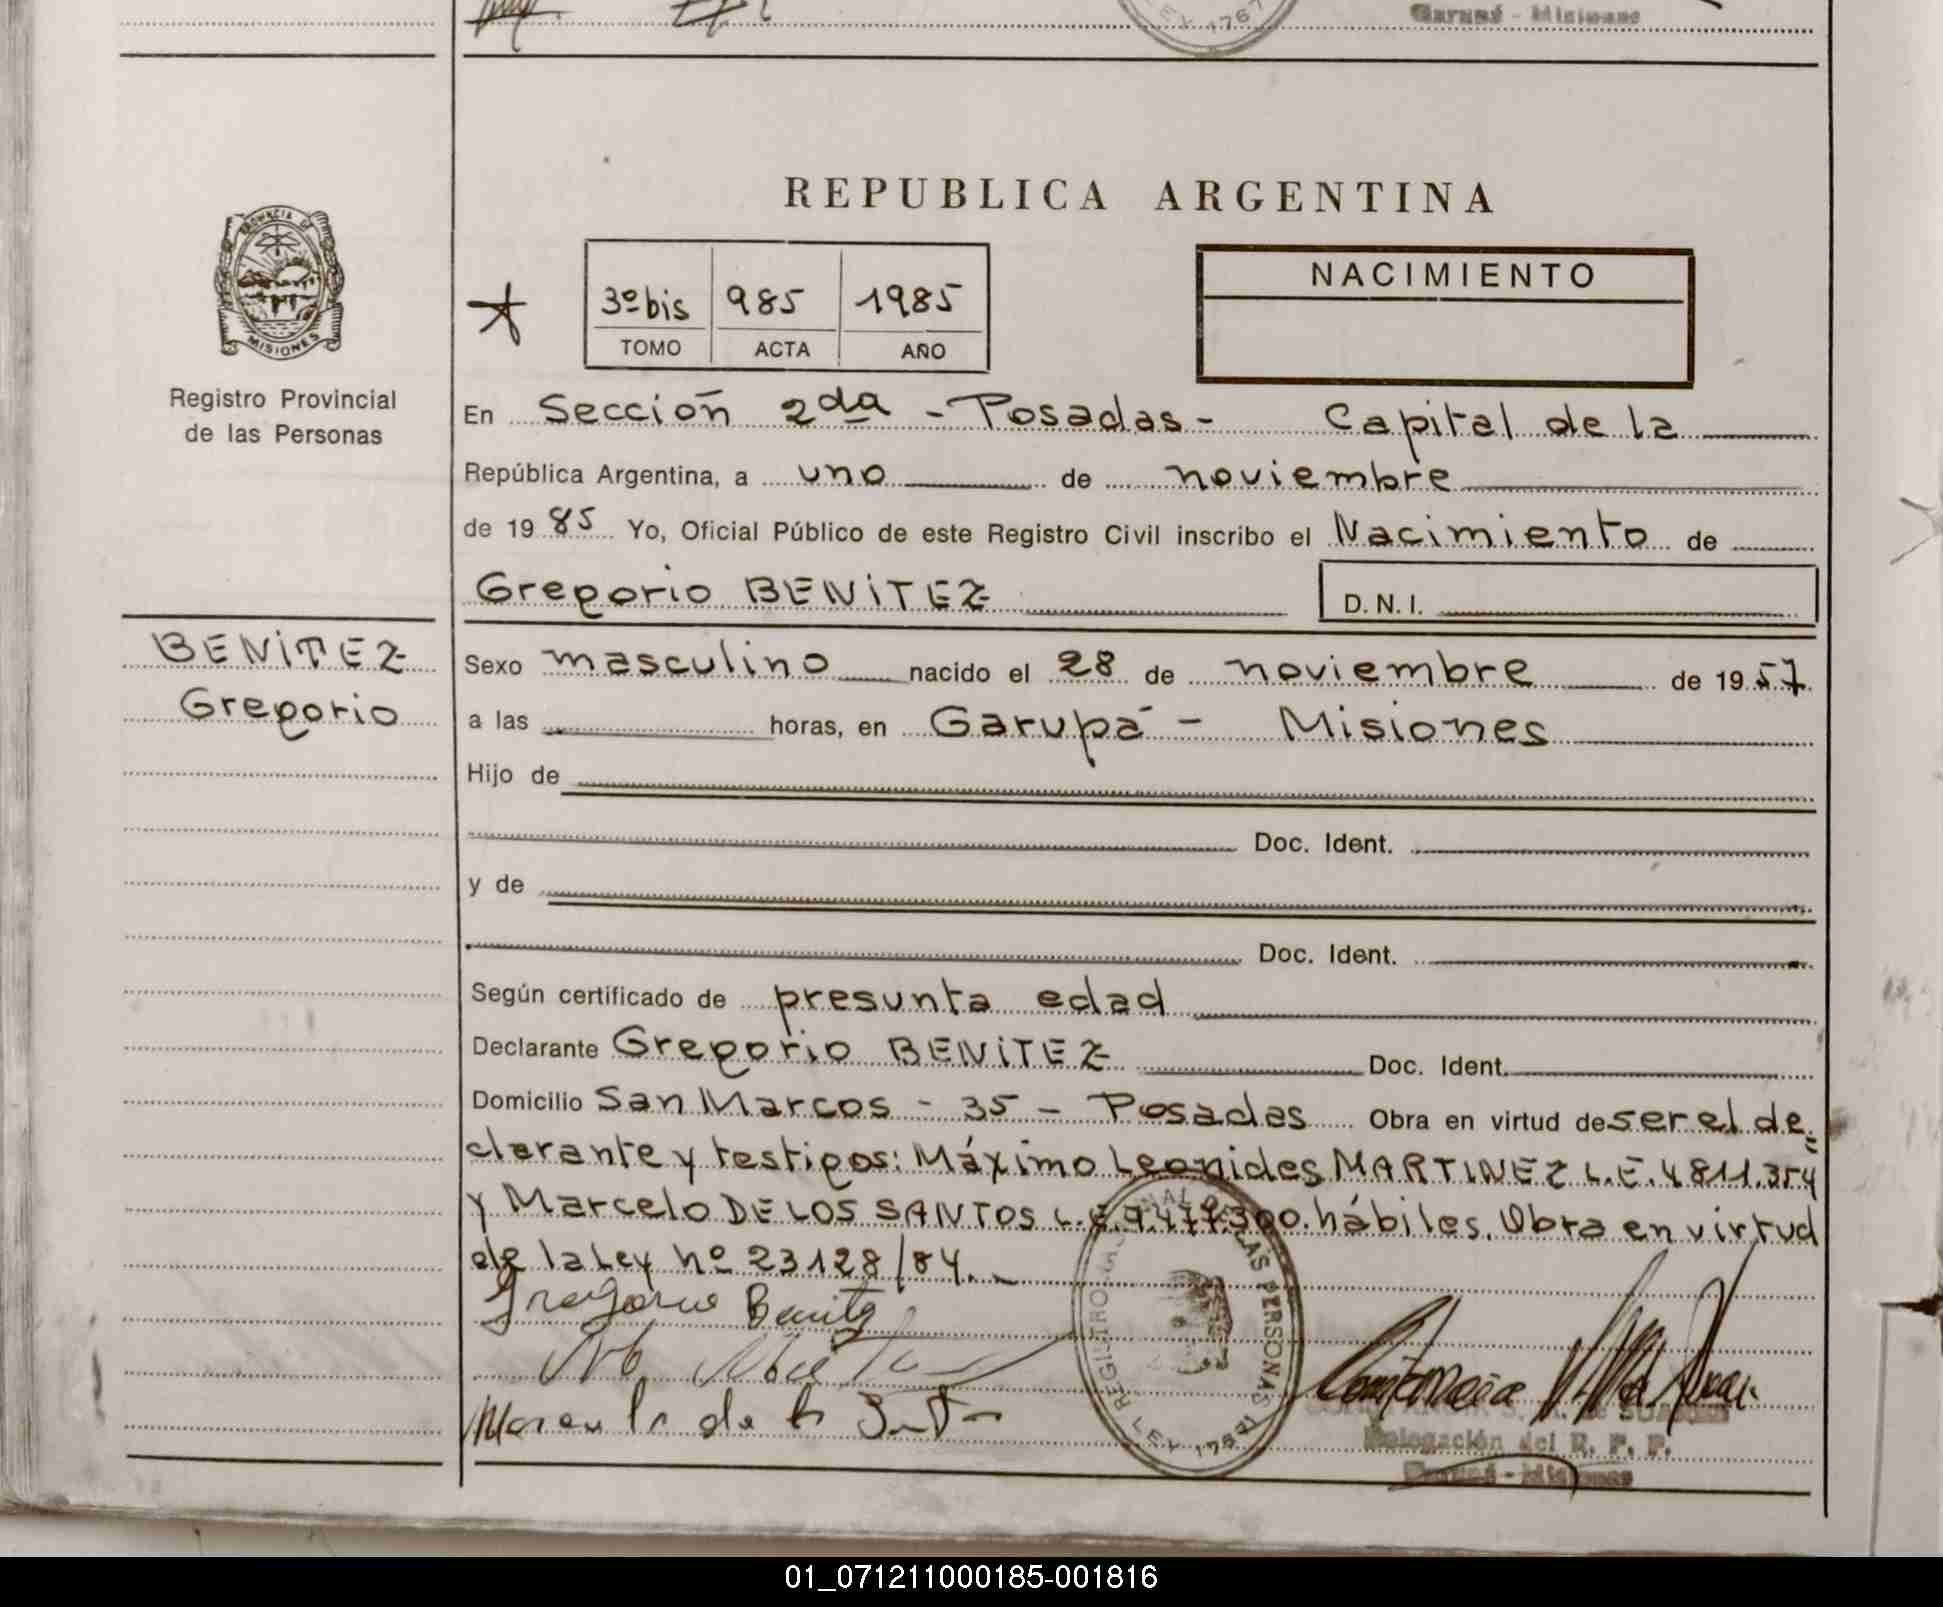 LEY 1767
Garupá - Misiones
PROVINCIA DE
MISIONES
Registro Provincial
de las Personas
REPUBLICA ARGENTINA
3º bis 985 1985
TOMO ACTA AÑO
NACIMIENTO
En Sección 2da - Posadas - Capital de la
República Argentina, a uno de noviembre
de 19 85 Yo, Oficial Público de este Registro Civil inscribo el Nacimiento de
Gregorio BENITEZ D.N.I.
BENITEZ
Gregorio
Sexo masculino nacido el 28 de noviembre de 19 57
a las horas, en Garupá - Misiones
Hijo de
Doc. Ident.
y de
Doc. Ident.
Según certificado de presunta edad
Declarante Gregorio BENITEZ Doc. Ident.
Domicilio San Marcos - 35 - Posadas Obra en virtud de ser el de=
clarante y testigos: Máximo Leonides MARTINEZ L.E. 4811.354
y Marcelo DE LOS SANTOS L.E. 9.477.300. hábiles. Obra en virtud
de la Ley nº 23128/84.
Gregorio Benitez
REGISTRO PROVINCIAL DE LAS PERSONAS
LEY 1767
Delegación del R. P. P.
Garupá - Misiones
01_071211000185-001816